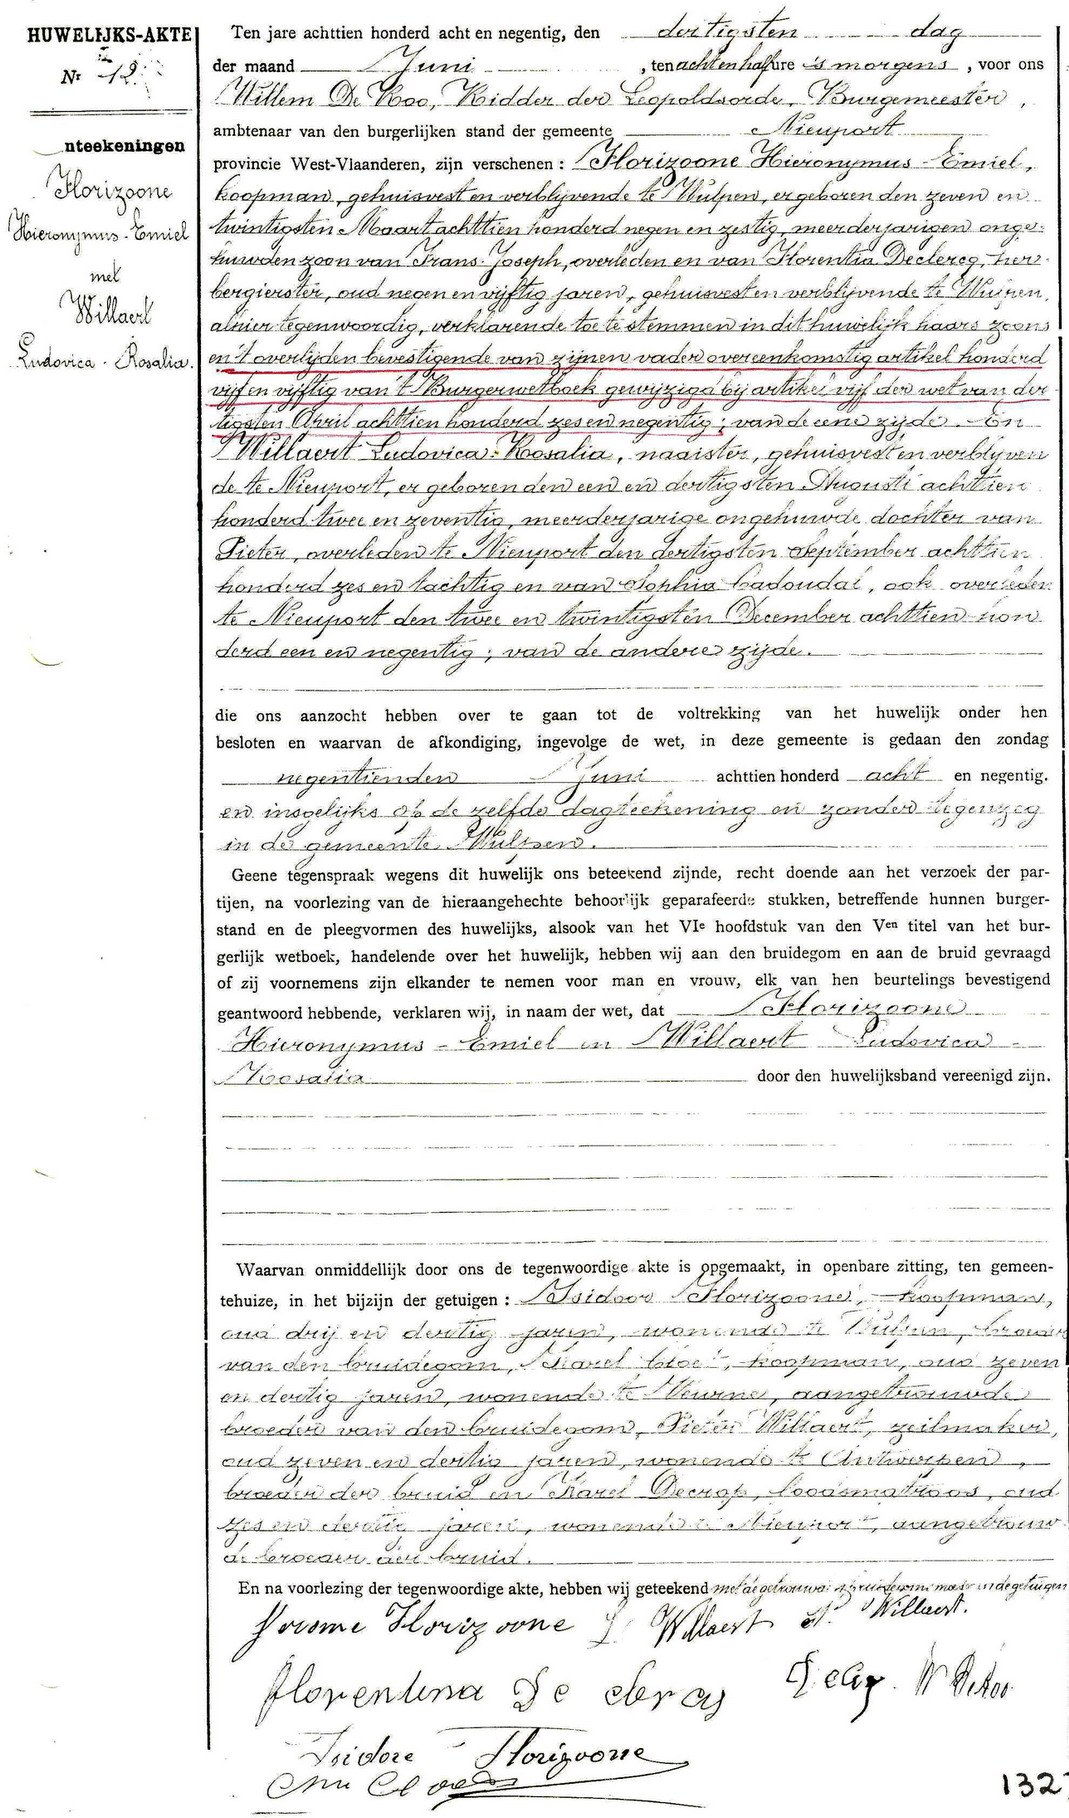 HUWELIJKS-AKTE
Nr 12
nteekeningen
Florizoone
Hieronymus-Emiel
met
Willaert
Ludovica-Rosalia.
Ten jare achttien honderd acht en negentig, den dertigsten dag
der maand Juni, ten acht en half ure 's morgens, voor ons
Willem De Roo, Ridder der Leopoldsorde, Burgemeester,
ambtenaar van den burgerlijken stand der gemeente Nieuport
provincie West-Vlaanderen, zijn verschenen : Florizoone Hieronymus-Emiel,
koopman, gehuisvest en verblijvende te Wulpen, er geboren den zeven en
twintigsten Maart achttien honderd negen en zestig, meerderjarigen onge-
huwden zoon van Frans-Joseph, overleden en van Florentia Declercq, her-
bergierster, oud negen en vijftig jaren, gehuisvest en verblijvende te Wulpen,
alhier tegenwoordig, verklarende toe te stemmen in dit huwelijk haars zoons
en 't overlijden bevestigende van zijnen vader overeenkomstig artikel honderd
vijf en vijftig van 't Burgerwetboek gewijzigd bij artikel vijf der wet van der-
tigsten April achttien honderd zes en negentig; van de eene zijde. En
Willaert Ludovica-Rosalia, naaister, gehuisvest en verblijven
de te Nieuport, er geboren den een en dertigsten Augusti achttien
honderd twee en zeventig, meerderjarige ongehuwde dochter van
Pieter, overleden te Nieuport den dertigsten September achttien
honderd zes en tachtig en van Sophia Cadoudal, ook overleden
te Nieuport den twee en twintigsten December achttien hon
derd een en negentig; van de andere zijde.
die ons aanzocht hebben over te gaan tot de voltrekking van het huwelijk onder hen
besloten en waarvan de afkondiging, ingevolge de wet, in deze gemeente is gedaan den zondag
negentienden Juni achttien honderd acht en negentig.
en insgelijks op de zelfde dagteekening en zonder tegenzeg
in de gemeente Wulpen.
Geene tegenspraak wegens dit huwelijk ons beteekend zijnde, recht doende aan het verzoek der par-
tijen, na voorlezing van de hieraangehechte behoorlijk geparafeerde stukken, betreffende hunnen burger-
stand en de pleegvormen des huwelijks, alsook van het VIe hoofdstuk van den Ven titel van het bur-
gerlijk wetboek, handelende over het huwelijk, hebben wij aan den bruidegom en aan de bruid gevraagd
of zij voornemens zijn elkander te nemen voor man en vrouw, elk van hen beurtelings bevestigend
geantwoord hebbende, verklaren wij, in naam der wet, dat Florizoone
Hieronymus-Emiel en Willaert Ludovica-
Rosalia door den huwelijksband vereenigd zijn.
Waarvan onmiddellijk door ons de tegenwoordige akte is opgemaakt, in openbare zitting, ten gemeen-
tehuize, in het bijzijn der getuigen : Isidoor Florizoone, koopman,
oud drij en dertig jaren, wonende te Wulpen, broeder
van den bruidegom, Karel, koopman, oud zeven
en dertig jaren, wonende te Veurne, aangetrouwde
broeder van den bruidegom, Pieter Willaert, zeilmaker,
oud zeven en dertig jaren, wonende te Antwerpen,
broeder der bruid en Karel Decrop, loodsmatroos, oud
zes en dertig jaren, wonende te Nieuport, aangetrouw-
de broeder der bruid.
En na voorlezing der tegenwoordige akte, hebben wij geteekend met de getrouwden, bruidegoms moeder en de getuigen
Jerome Florizoone L Willaert P. Willaert.
Florentina De clercq W DeRoo
Isidore Florizoone
132